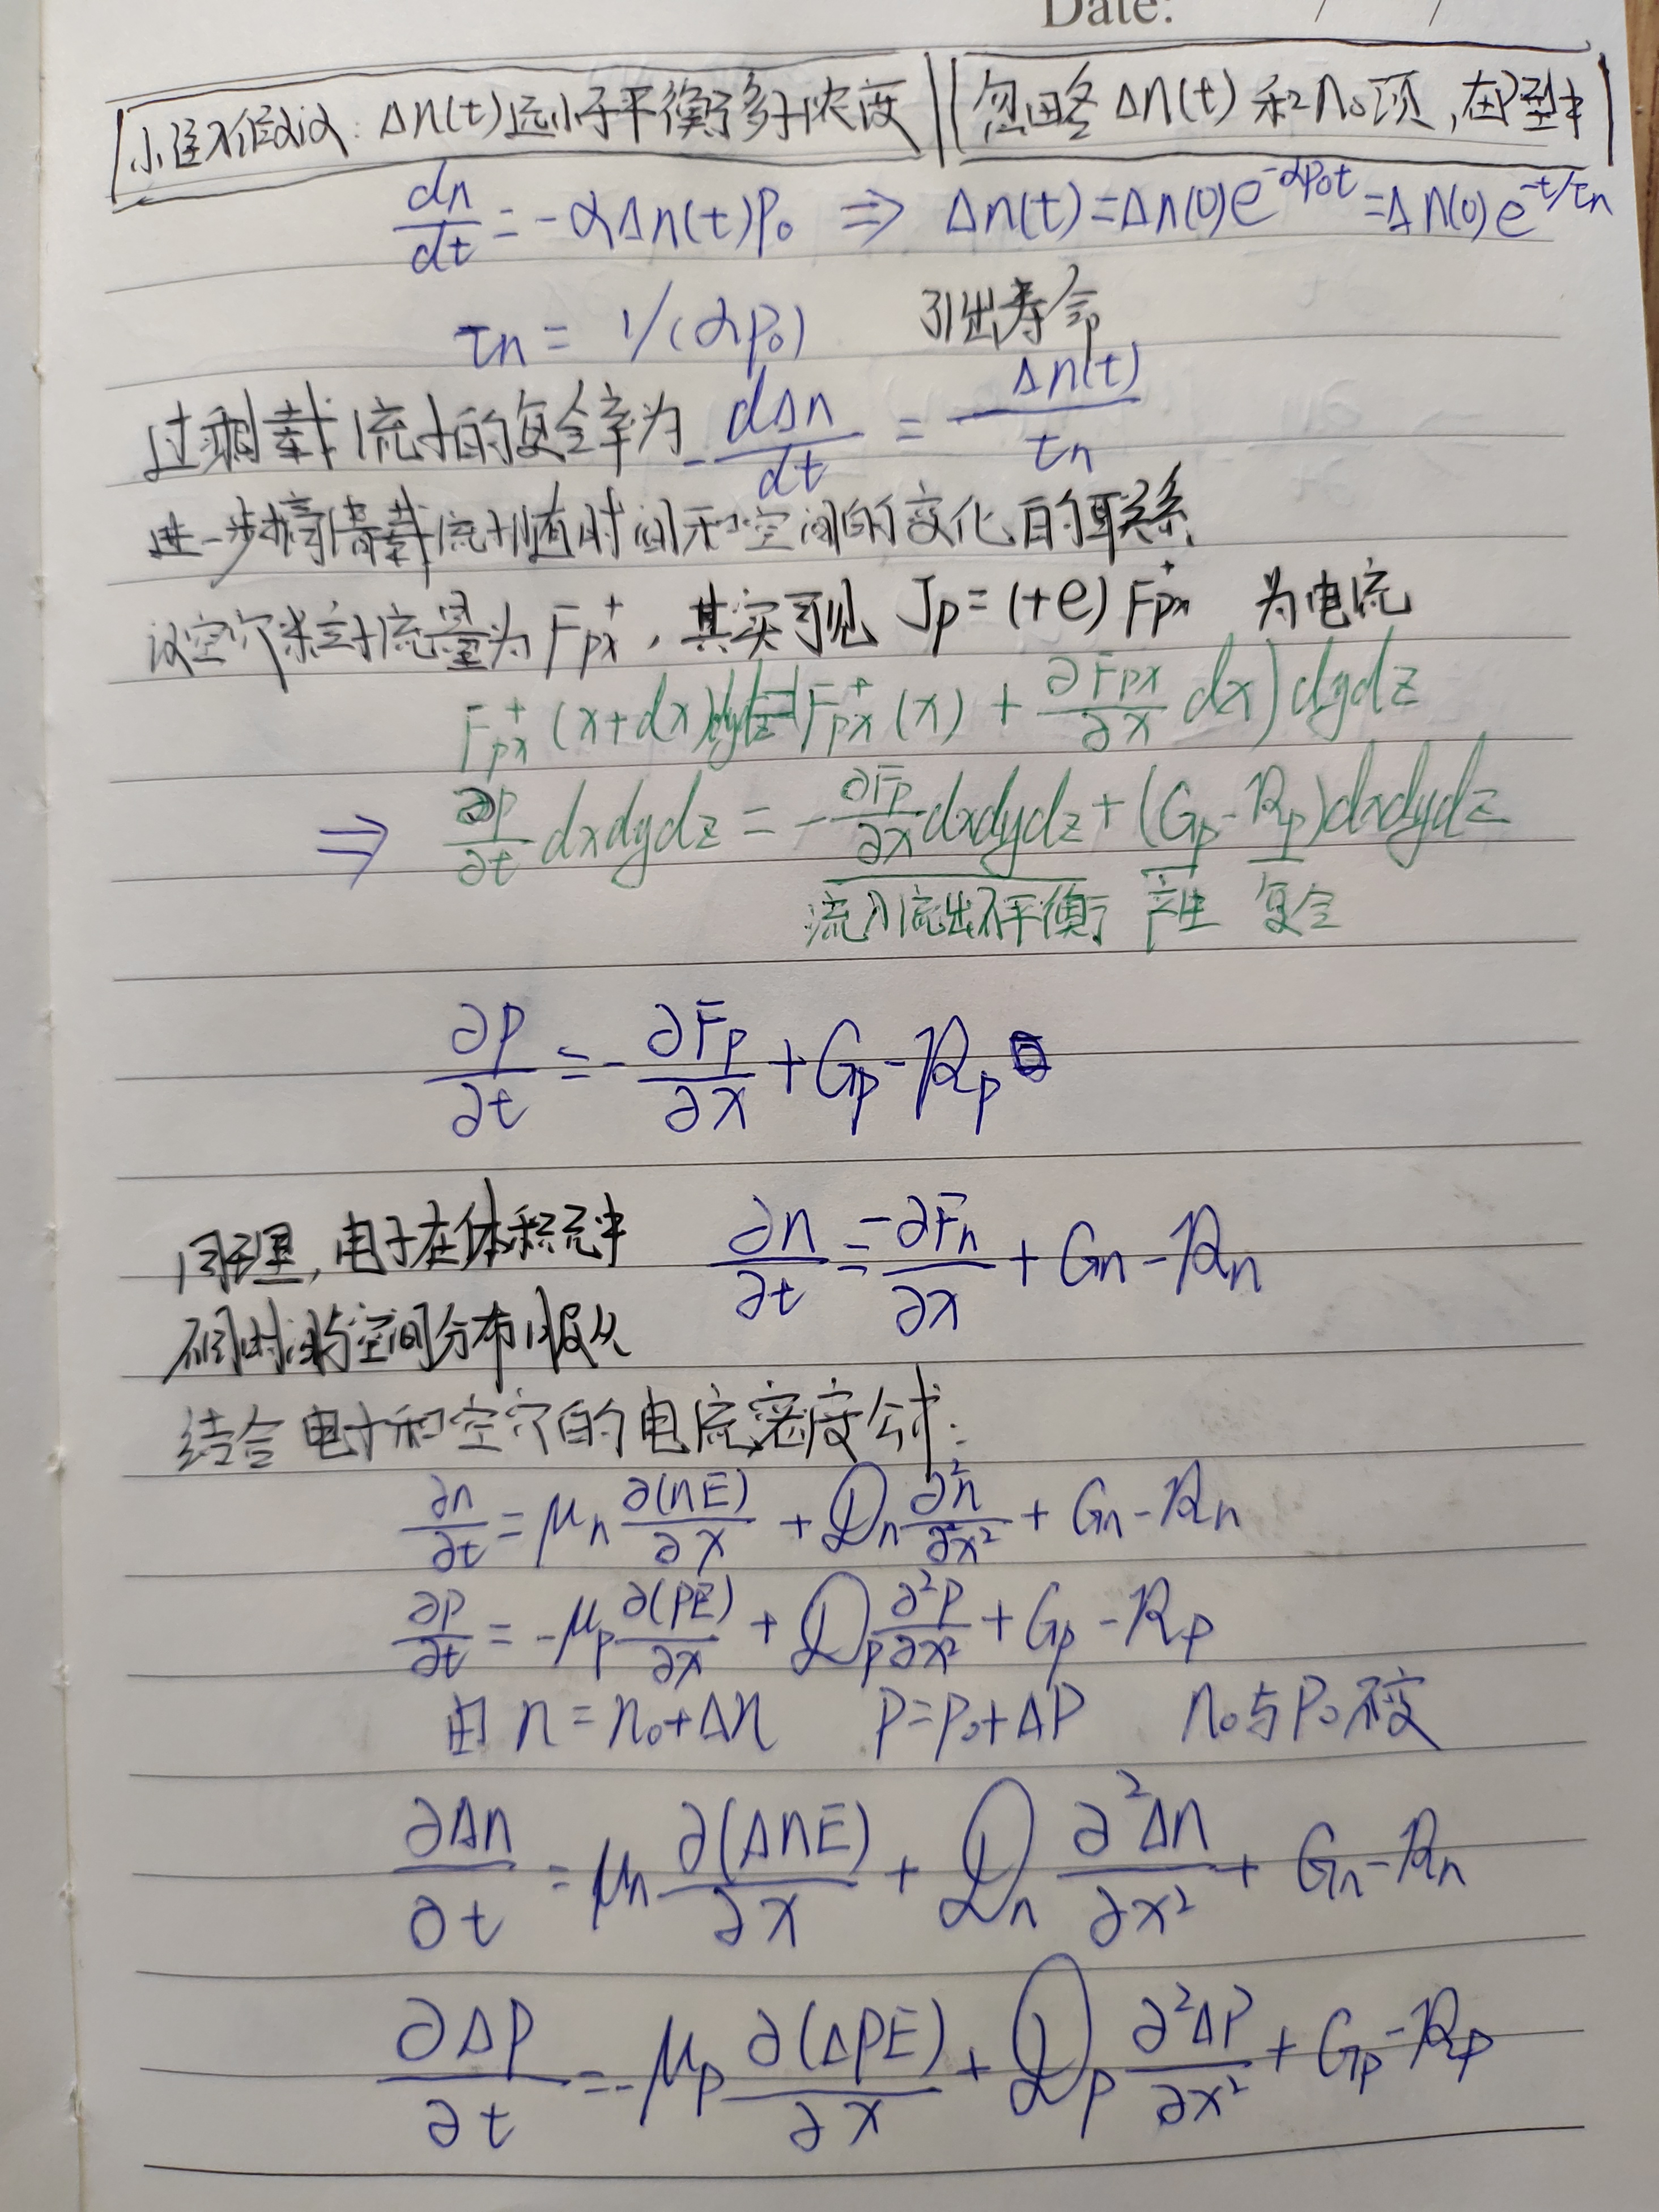 Date: / /
小注入假设: Δn(t)远小于平衡多子浓度 || 忽略 Δn(t) 和 n₀项, 在P型中
dn/dt = -αΔn(t)p₀ ⇒ Δn(t)=Δn(0)e^{-αp₀t}=Δn(0)e^{-t/τn}
τn = 1/(αp₀) 引出寿命
过剩载流子的复合率为 -dΔn/dt = Δn(t)/τn
进一步搞清载流子随时间和空间的变化的联系
设空穴粒子流量为 F_{px}^+, 其实可见 Jp=(+e)F_{px}^+ 为电流
F_{px}^+(x+dx)dydz=(F_{px}^+(x) + ∂F_{px}/∂x dx)dydz
⇒ ∂p/∂t dxdydz = -∂Fp/∂x dxdydz + (Gp-Rp)dxdydz
流入流出不平衡 产生 复合
∂p/∂t = -∂Fp/∂x + Gp - Rp
同理, 电子在体积元中 ∂n/∂t = -∂Fn/∂x + Gn - Rn
不同时间与空间分布服从
结合电子和空穴的电流密度公式:
∂n/∂t = μn ∂(nE)/∂x + Dn ∂²n/∂x² + Gn - Rn
∂p/∂t = -μp ∂(pE)/∂x + Dp ∂²p/∂x² + Gp - Rp
由 n=n₀+Δn p=p₀+Δp n₀与p₀不变
∂Δn/∂t = μn ∂(ΔnE)/∂x + Dn ∂²Δn/∂x² + Gn - Rn
∂Δp/∂t = -μp ∂(ΔpE)/∂x + Dp ∂²Δp/∂x² + Gp - Rp